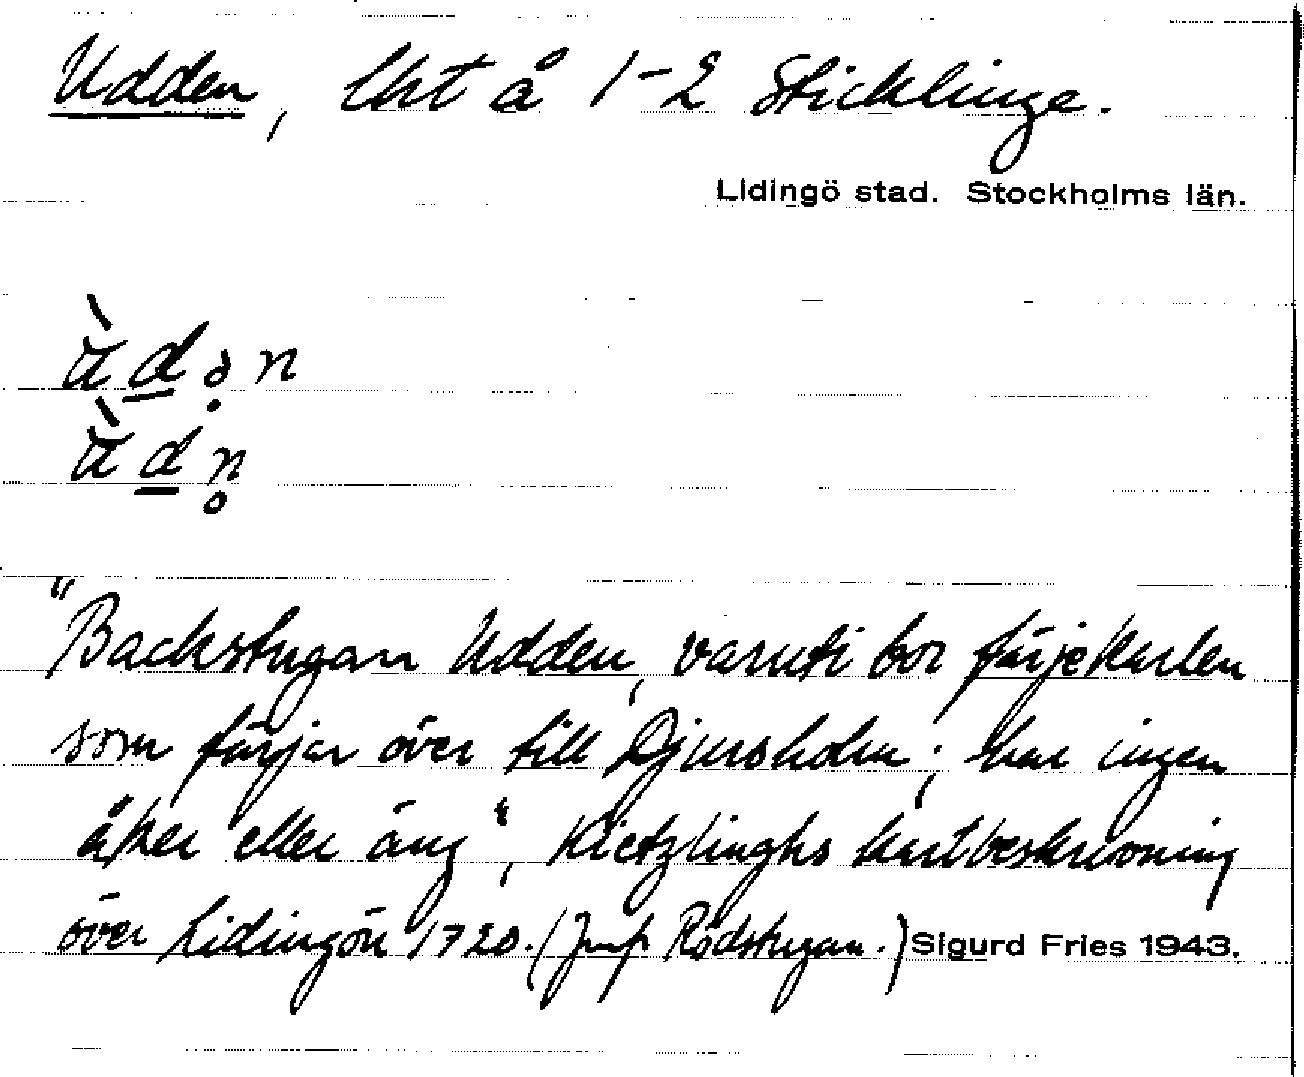 Udden, lht å 1-2 Sticklinge.
Lidingö stad. Stockholms län.
"Backstugan Udden, varuti bor färjekarlen
som färjar över till Djursholm; har ingen
åker eller äng", Kietzlinghs kartbeskrivning
över Lidingön 1720. (Jmf Rödstugan.) Sigurd Fries 1943.